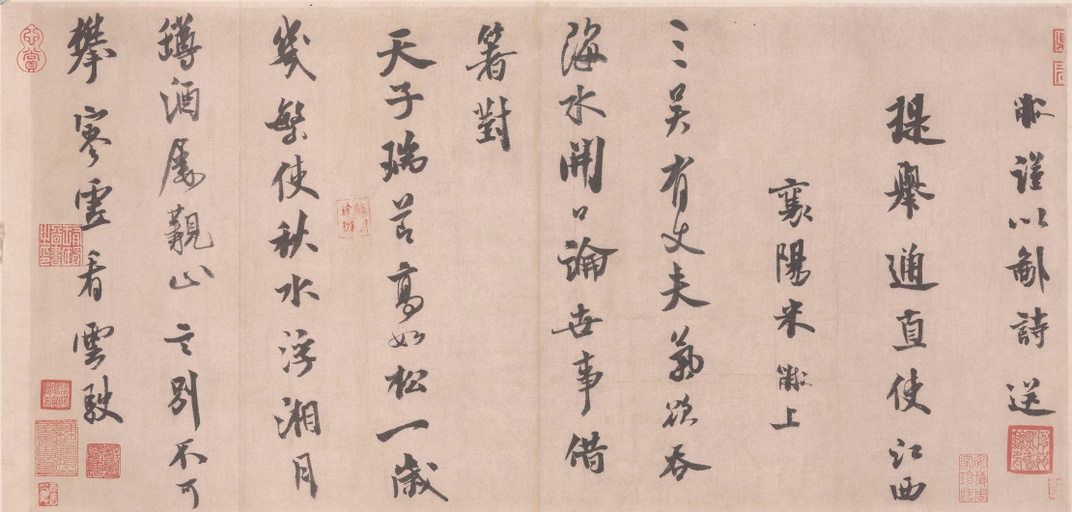 黻謹以鄙詩送
提舉通直使江西
襄陽米黻上
三吴有丈夫氣欲吞
海水開口論世事借
箸對
天子瑞節高如松一歲
幾繁使秋水浮湘月
罇酒屢覯止言別不可
攀寥虛看雲駛